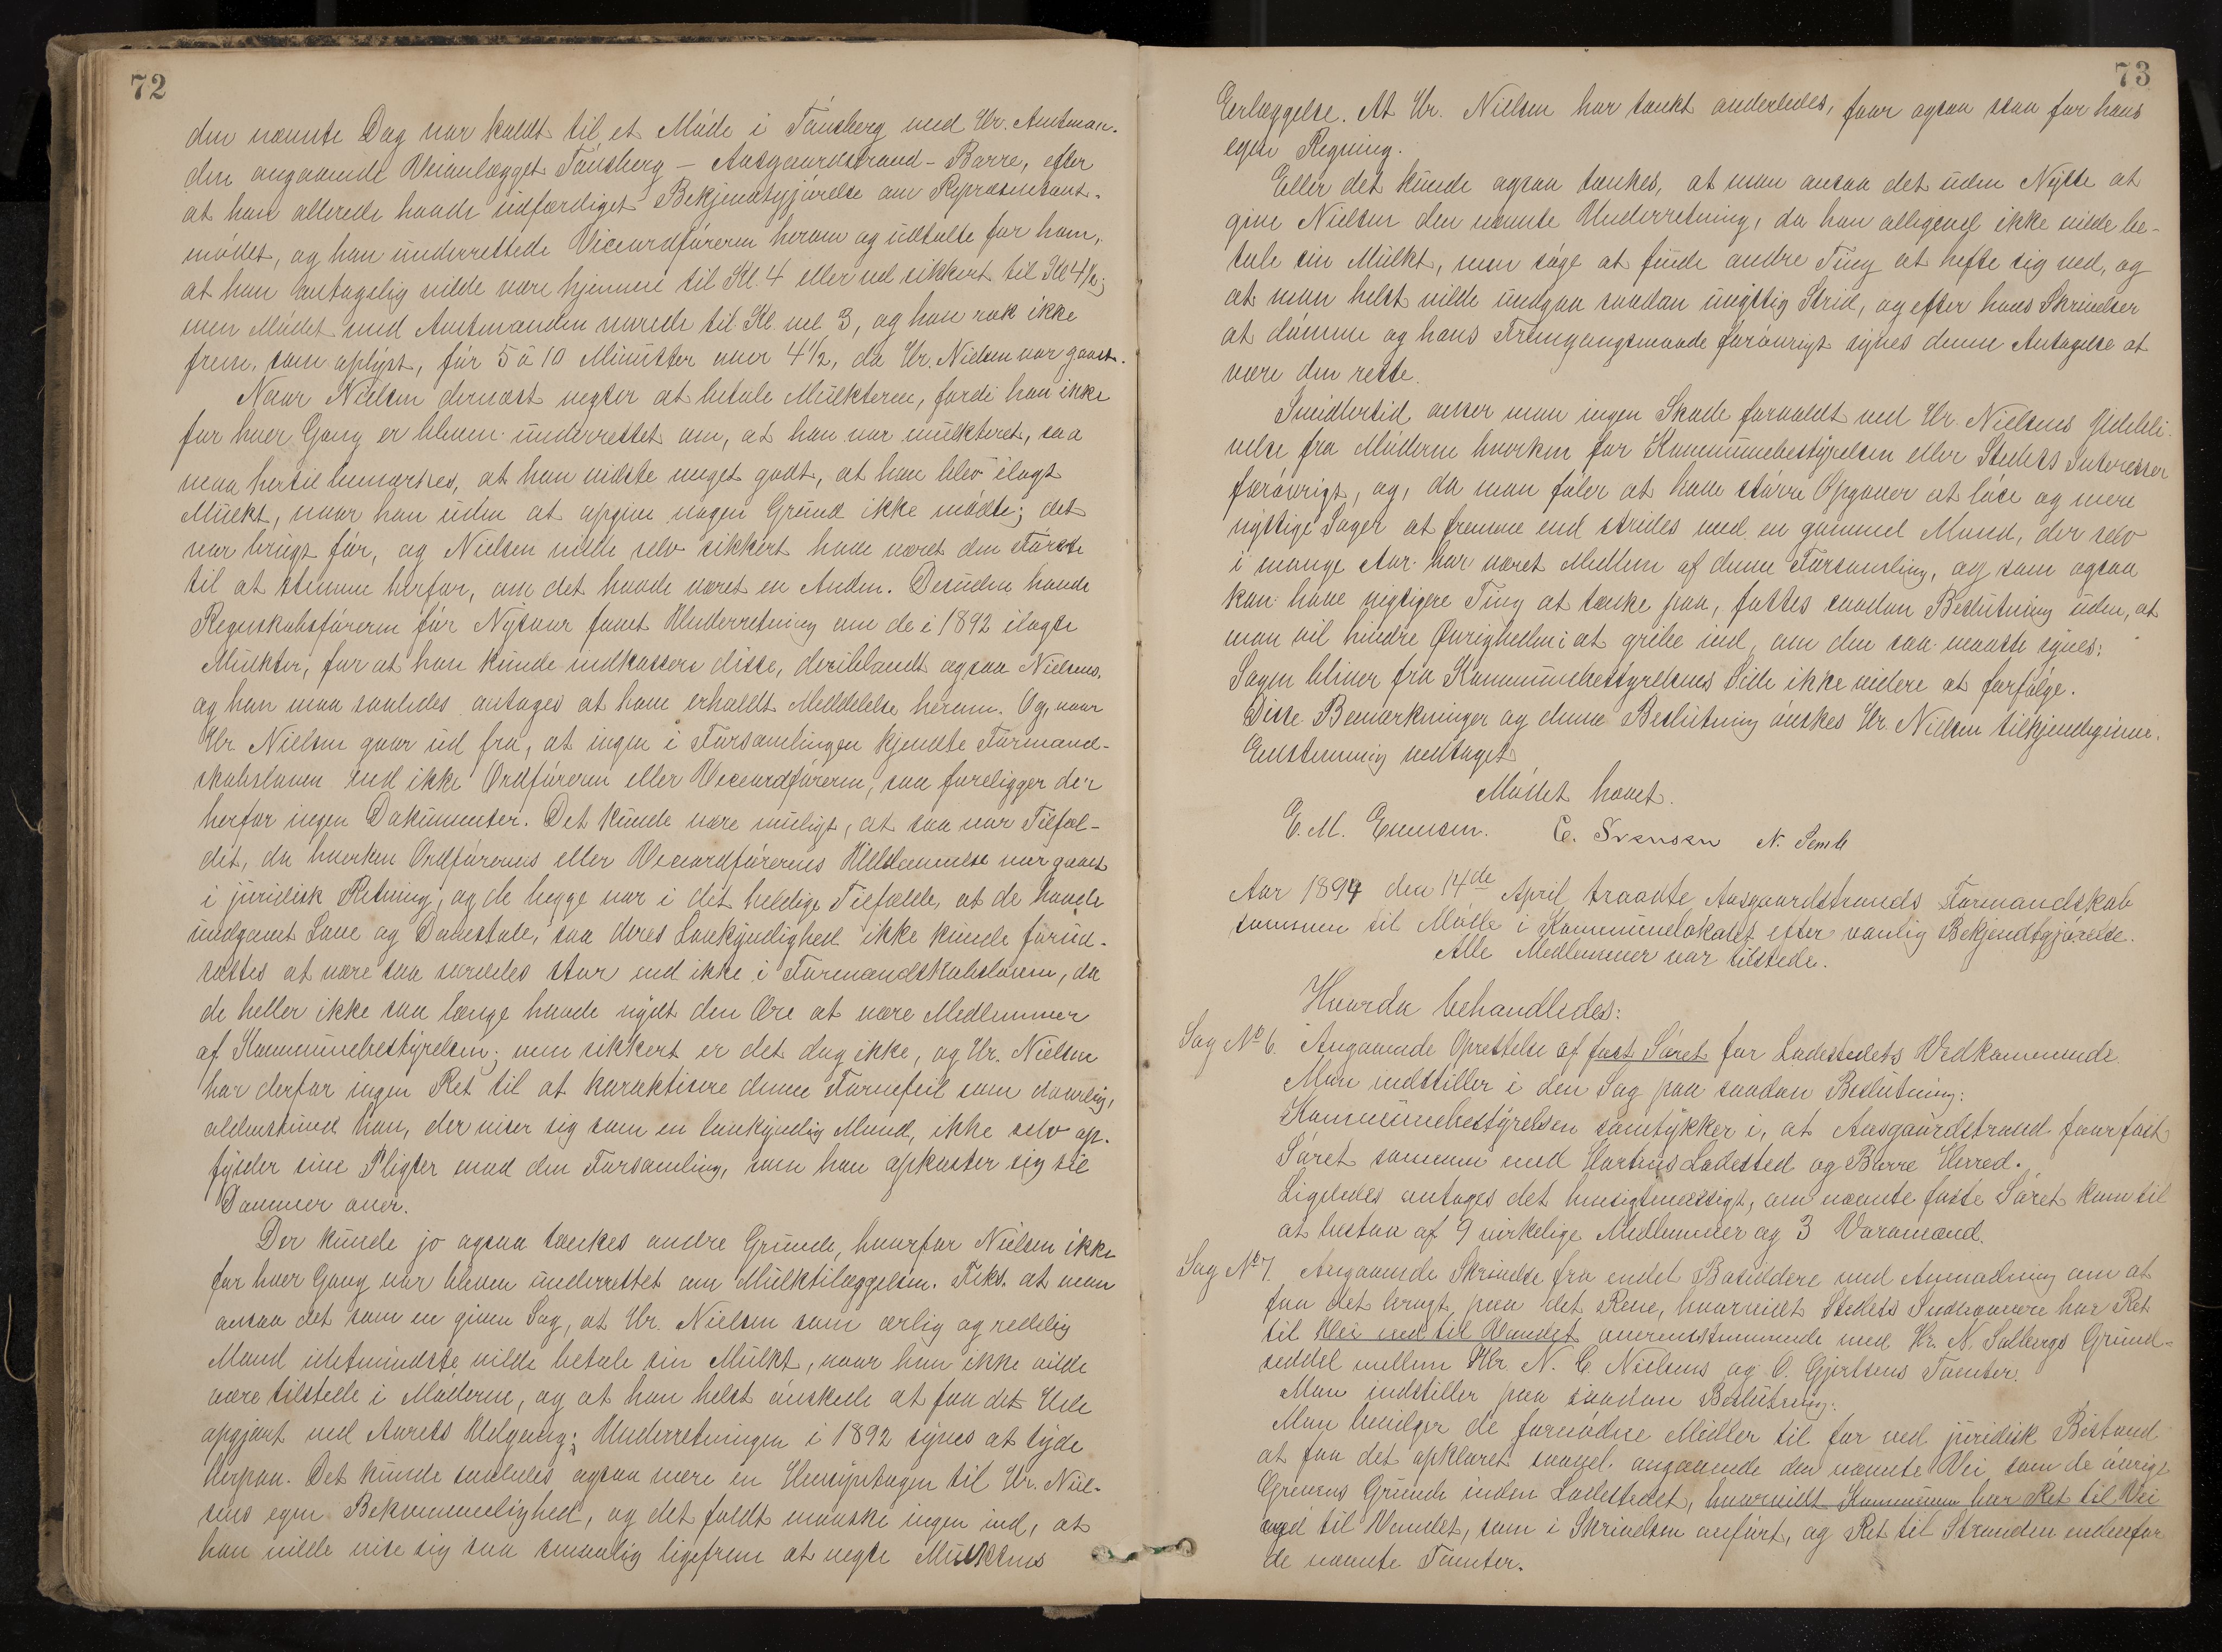 72
den nævnte Dag var kaldt til et Møde i Tønsberg med Hr. Amtman-
den angaaende Veianlægget Tønsberg - Aasgaardstrand - Borre, efter
at han allerede havde udfærdiget Bekjendtgjørelse om Repræsentant-
mødet, og han underrettede Viceordføreren herom og udtalte for ham,
at han antagelig vilde være hjemme til Kl. 4 eller ved sikkert til Kl 4½;
men Mødet med Amtmanden varede til Kl. vel 3, og han rak ikke
frem, som oplyst, før 5 à 10 Minutter over 4½, da Hr. Nielsen var gaaet.
Naar Nielsen dernæst negter at betale Mulkterne, fordi han ikke
for hver Gang er bleven underrettet om, at han var mulkteret, saa
maa hertil bemærkes, at han vidste meget godt, at han blev ilagt
Mulkt, naar han uden at opgive nogen Grund ikke mødte; det
var brugt før, og Nielsen vilde selv sikkert have været den Første
til at stemme herfor, om det havde været en Anden. Desuden havde
Regnskabsføreren før Nytaar faaet Underretning om de i 1892 ilagte
Mulkter, for at han kunde indkassere disse, deriblandt ogsaa Nielsens,
og han maa saaledes antages at have erholdt Meddelelse herom. Og, naar
Hr. Nielsen gaar ud fra, at ingen i Forsamlingen kjendte Formand-
skabsloven end ikke Ordføreren eller Viceordføreren, saa foreligger der
herfor ingen Dokumenter. Det kunde være muligt, at saa var Tilfæl-
det, da hverken Ordførerens eller Viceordførerens Uddannelse var gaaet
i juridisk Retning, og de begge var i det heldige Tilfælde, at de havde
undgaaet Love og Domstole, saa deres Lovkyndighed ikke kunde forud-
sættes at være saa særdeles stor end ikke i Formandskabsloven, da
de heller ikke saa længe havde nydt den Ære at være Medlemmer
af Kommunebestyrelsen; men sikkert er det dog ikke, og Hr. Nielsen
har derfor ingen Ret til at karaktisere denne Formfeil som daarlig,
aldenstund han, der viser sig som en lovkyndig Mand, ikke selv op-
fylder sine Pligter mod den Forsamling, som han opkaster sig til
Dommer over.
Der kunde jo ogsaa tænkes andre Grunde, hvorfor Nielsen ikke
for hver Gang var bleven underrettet om Mulktilæggelsen. F.eks. at man
ansaa det som en given Sag, at Hr. Nielsen som ærlig og redelig
Mand idetmindste vilde betale sin Mulkt, naar han ikke vilde
være tilstede i Møderne, og at han helst ønskede at faa det Hele
opgjort ved Aarets Udgang; Underretningen i 1892 synes at tyde
herpaa. Det kunde saaledes ogsaa være en Hensyntagen til Hr. Niel-
sens egen Bekvemmelighed, og det faldt maaske ingen ind, at
han vilde vise sig saa smaalig ligefrem at negte Mulktens
73
Erlæggelse. At Hr. Nielsen har tænkt anderledes, faar ogsaa staa for hans
egen Regning.
Eller det kunde ogsaa tænkes, at man ansaa det uden Nytte at
give Nielsen den nævnte Underretning, da han alligevel ikke vilde be-
tale sin Mulkt, men søge at finde andre Ting at hefte sig ved, og
at man helst vilde undgaa saadan unyttig Strid, og efter hans Skrivelser
at dømme og hans Fremgangsmaade forøvrigt synes denne Antagelse at
være den rette.
Imidlertid anser man ingen Skade forvoldt ved Hr. Nielsens Udebli-
velse fra Møderne hverken for Kommunebestyrelsen eller Stedets Interesser
forøvrigt, og, da man føler at have større Opgaver at løse og mere
nyttige Sager at fremme end strides med en gammel Mand, der selv
i mange Aar har været Medlem af denne Forsamling, og som ogsaa
kan have vigtigere Ting at tænke paa, fattes saadan Beslutning uden, at
man vil hindre Øvrigheden i at gribe ind, om den saa maatte synes:
Sagen bliver fra Kommunebestyrelsens Side ikke videre at forfølge.
Disse Bemærkninger og denne Beslutning ønskes Hr. Nielsen tilkjendegivne.
Enstemmig vedtaget
Mødet hævet.
E. M. Evensen. C. Svensen N. Semb
Aar 1894 den 14de April traadte Aasgaardstrands Formandskab
sammen til Møde i Kommunelokalet efter vanlig Bekjendtgjørelse.
Alle Medlemmer var tilstede.
Hvorda behandledes:
Sag No 6. Angaaende Oprettelse af fast Søret for Ladestedets Vedkommende.
Man indstiller i den Sag paa saadan Beslutning:
Kommunebestyrelsen samtykker i, at Aasgaardstrand faar fast
Søret sammen med Hortens Ladested og Borre Herred.
Ligeledes antages det hensigtmessigt, om nævnte faste Søret kom til
at bestaa af 9 virkelige Medlemmer og 3 Varamænd.
Sag No 7. Angaaende Skrivelse fra endel Bosiddere med Anmodning om at
faa det bragt paa det Rene, hvorvidt Stedets Indvaanere har Ret
til Vei ned til Vandet overensstemmende med Hr. N. Solbergs Grund-
seddel mellem Hr. N. C. Nielsens og O. Gjertsens Tomter.
Man indstiller paa saadan Beslutning:
Man bevilger de fornødne Midler til for ved juridisk Bistand
at faa det opklaret saavel angaaende den nævnte Vei som de øvrige
Grevens Grunde inden Ladestedet, hvorvidt Kommunen har Ret til Vei
ned til Vandet, som i Skrivelsen anført, og Ret til Stranden endenfor
de nævnte Tomter.